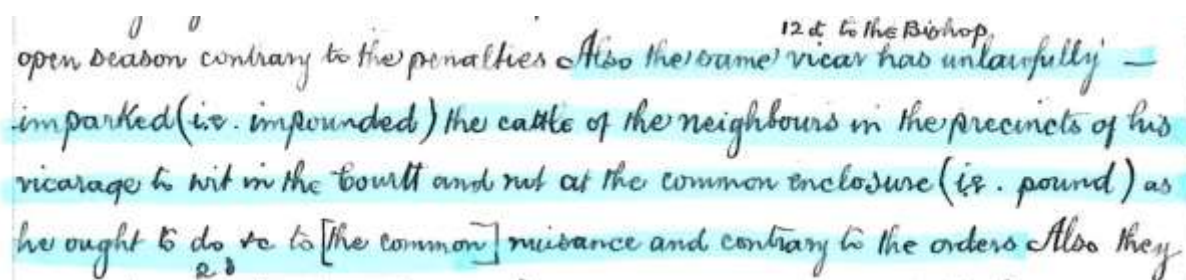 12d to the Bishop
open season contrary to the penalties Also the same vicar has unlawfully —
imparked (i.e. impounded) the cattle of the neighbours in the precincts of his
vicarage to wit in the Courtt and not at the common enclosure (i.e. pound) as
he ought to do &c to [the common] nuisance and contrary to the orders Also they